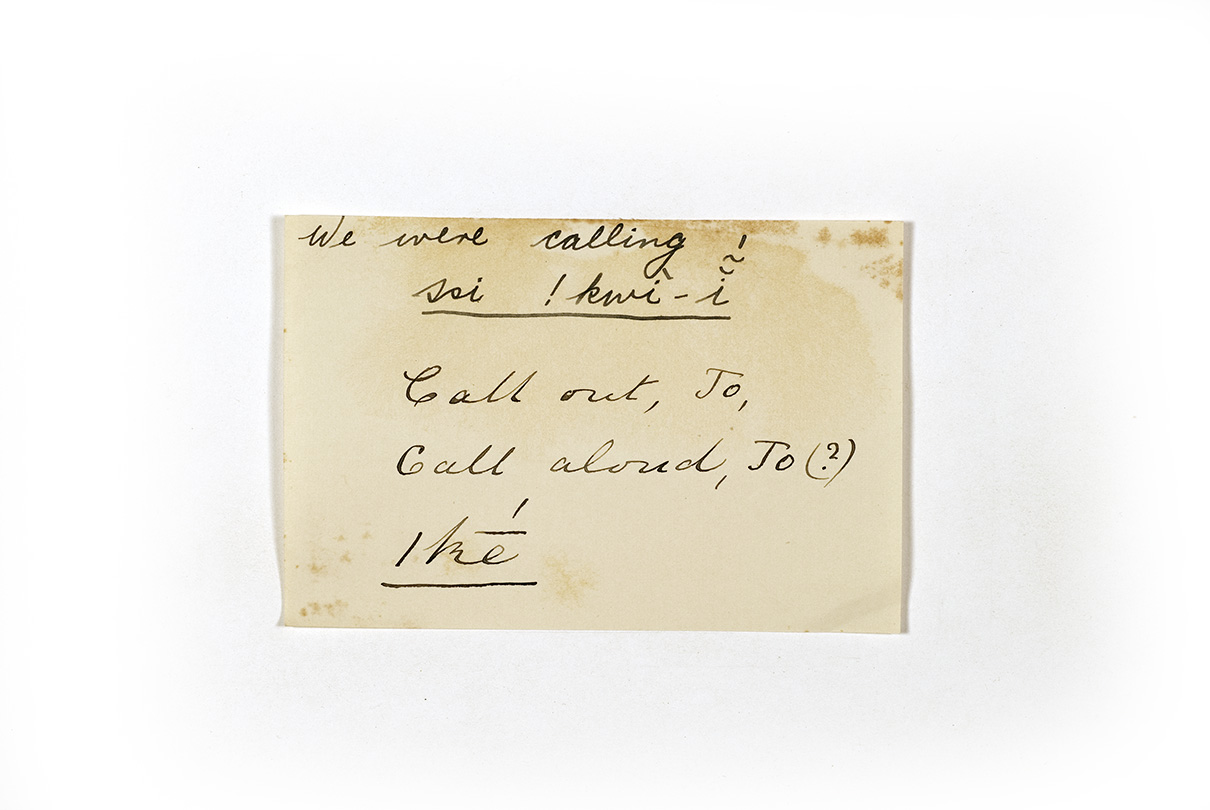 We were calling
si !kwì-ĩ̆́
Call out, To,
Call aloud, To (?)
|kḗ